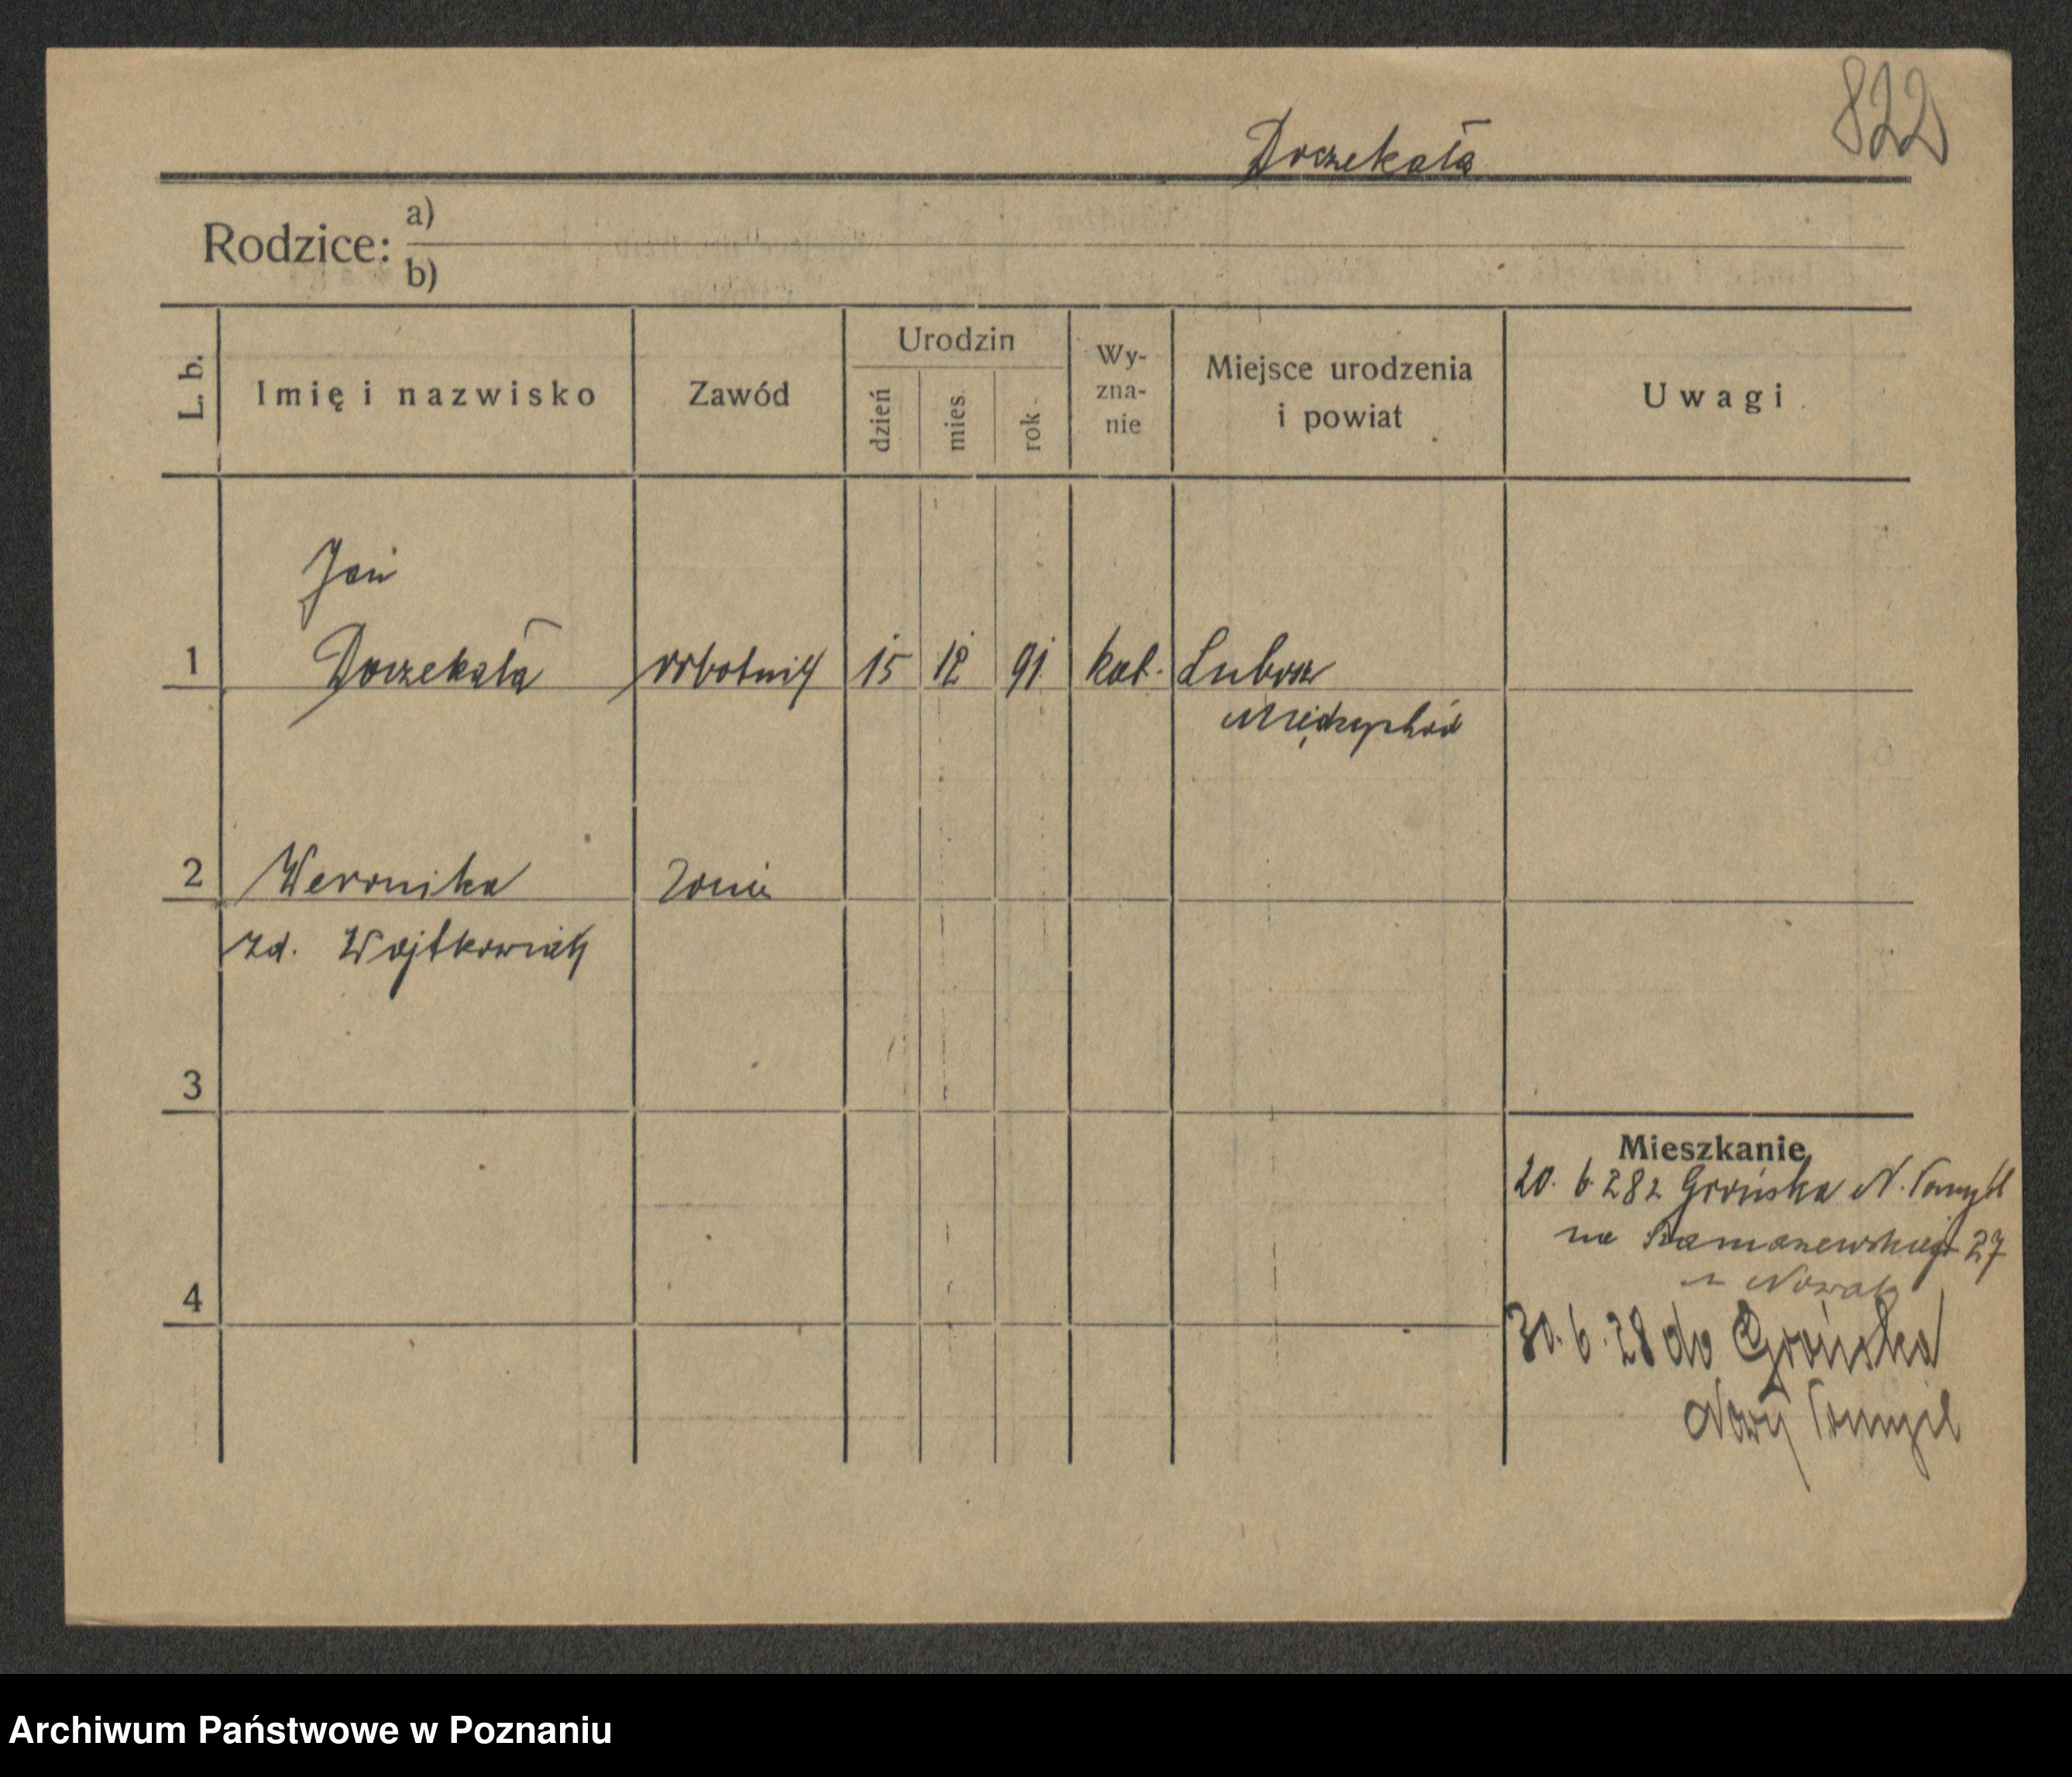 822
Doczekała
Rodzice: a)
b)
L. b.
Imię i nazwisko
Zawód
Urodzin
dzień
mies.
rok
Wy-
zna-
nie
Miejsce urodzenia
i powiat
Uwagi
Jan
1 Doczekała robotnik 15 12 91 kat. Lubosz
Międzychód
2 Weronika żona
zd. Wojtkowiak
3
4
Mieszkanie
20. 6. 28 z Grońska N. Tomyśl
na Szamarzewskiego 27
u Nowak
30. 6. 28 do Grońska
Nowy Tomyśl
Archiwum Państwowe w Poznaniu